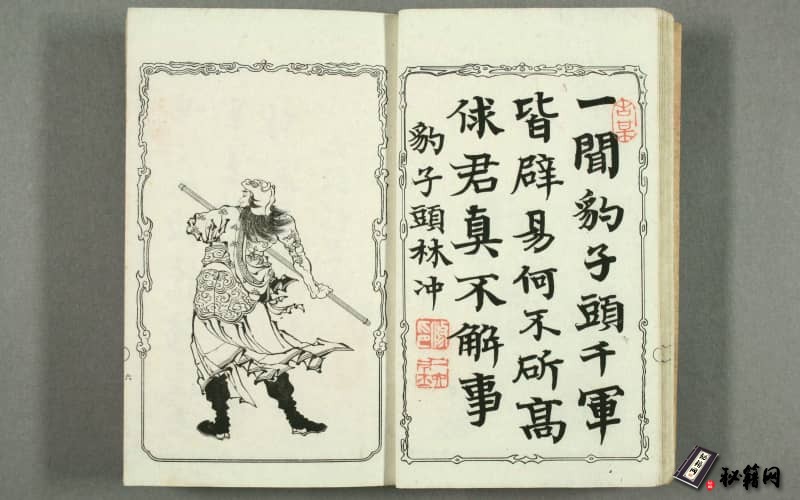 一聞豹子頭千軍
皆辟易何不斫高
俅君真不解事
豹子頭林冲
六
秘籍网